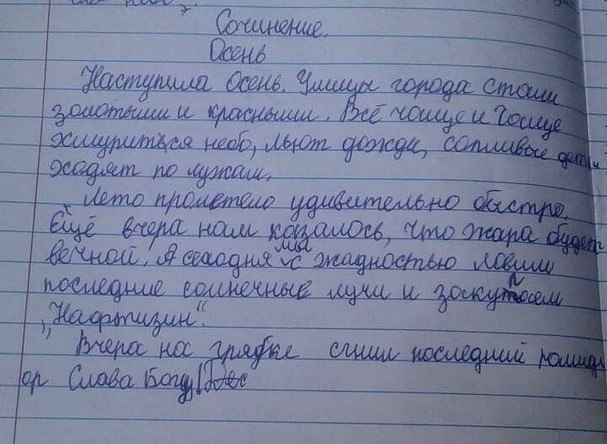 Сочинение.
Осень
Наступила Осень. Улицы города стали
золотыми и красными. Всё чаще и чаще
хмуриться небо, льют дожди, сопливые дети
ходят по лужам.
Лето пролетело удивительно быстро.
Ещё вчера нам казалось, что жара будет
вечной. А сегодня мы с жадностью ловим
последние солнечные лучи и закупаем
„Нафтизин“.
Вчера на грядке сгнил последний помид-
ор Слава Богу!